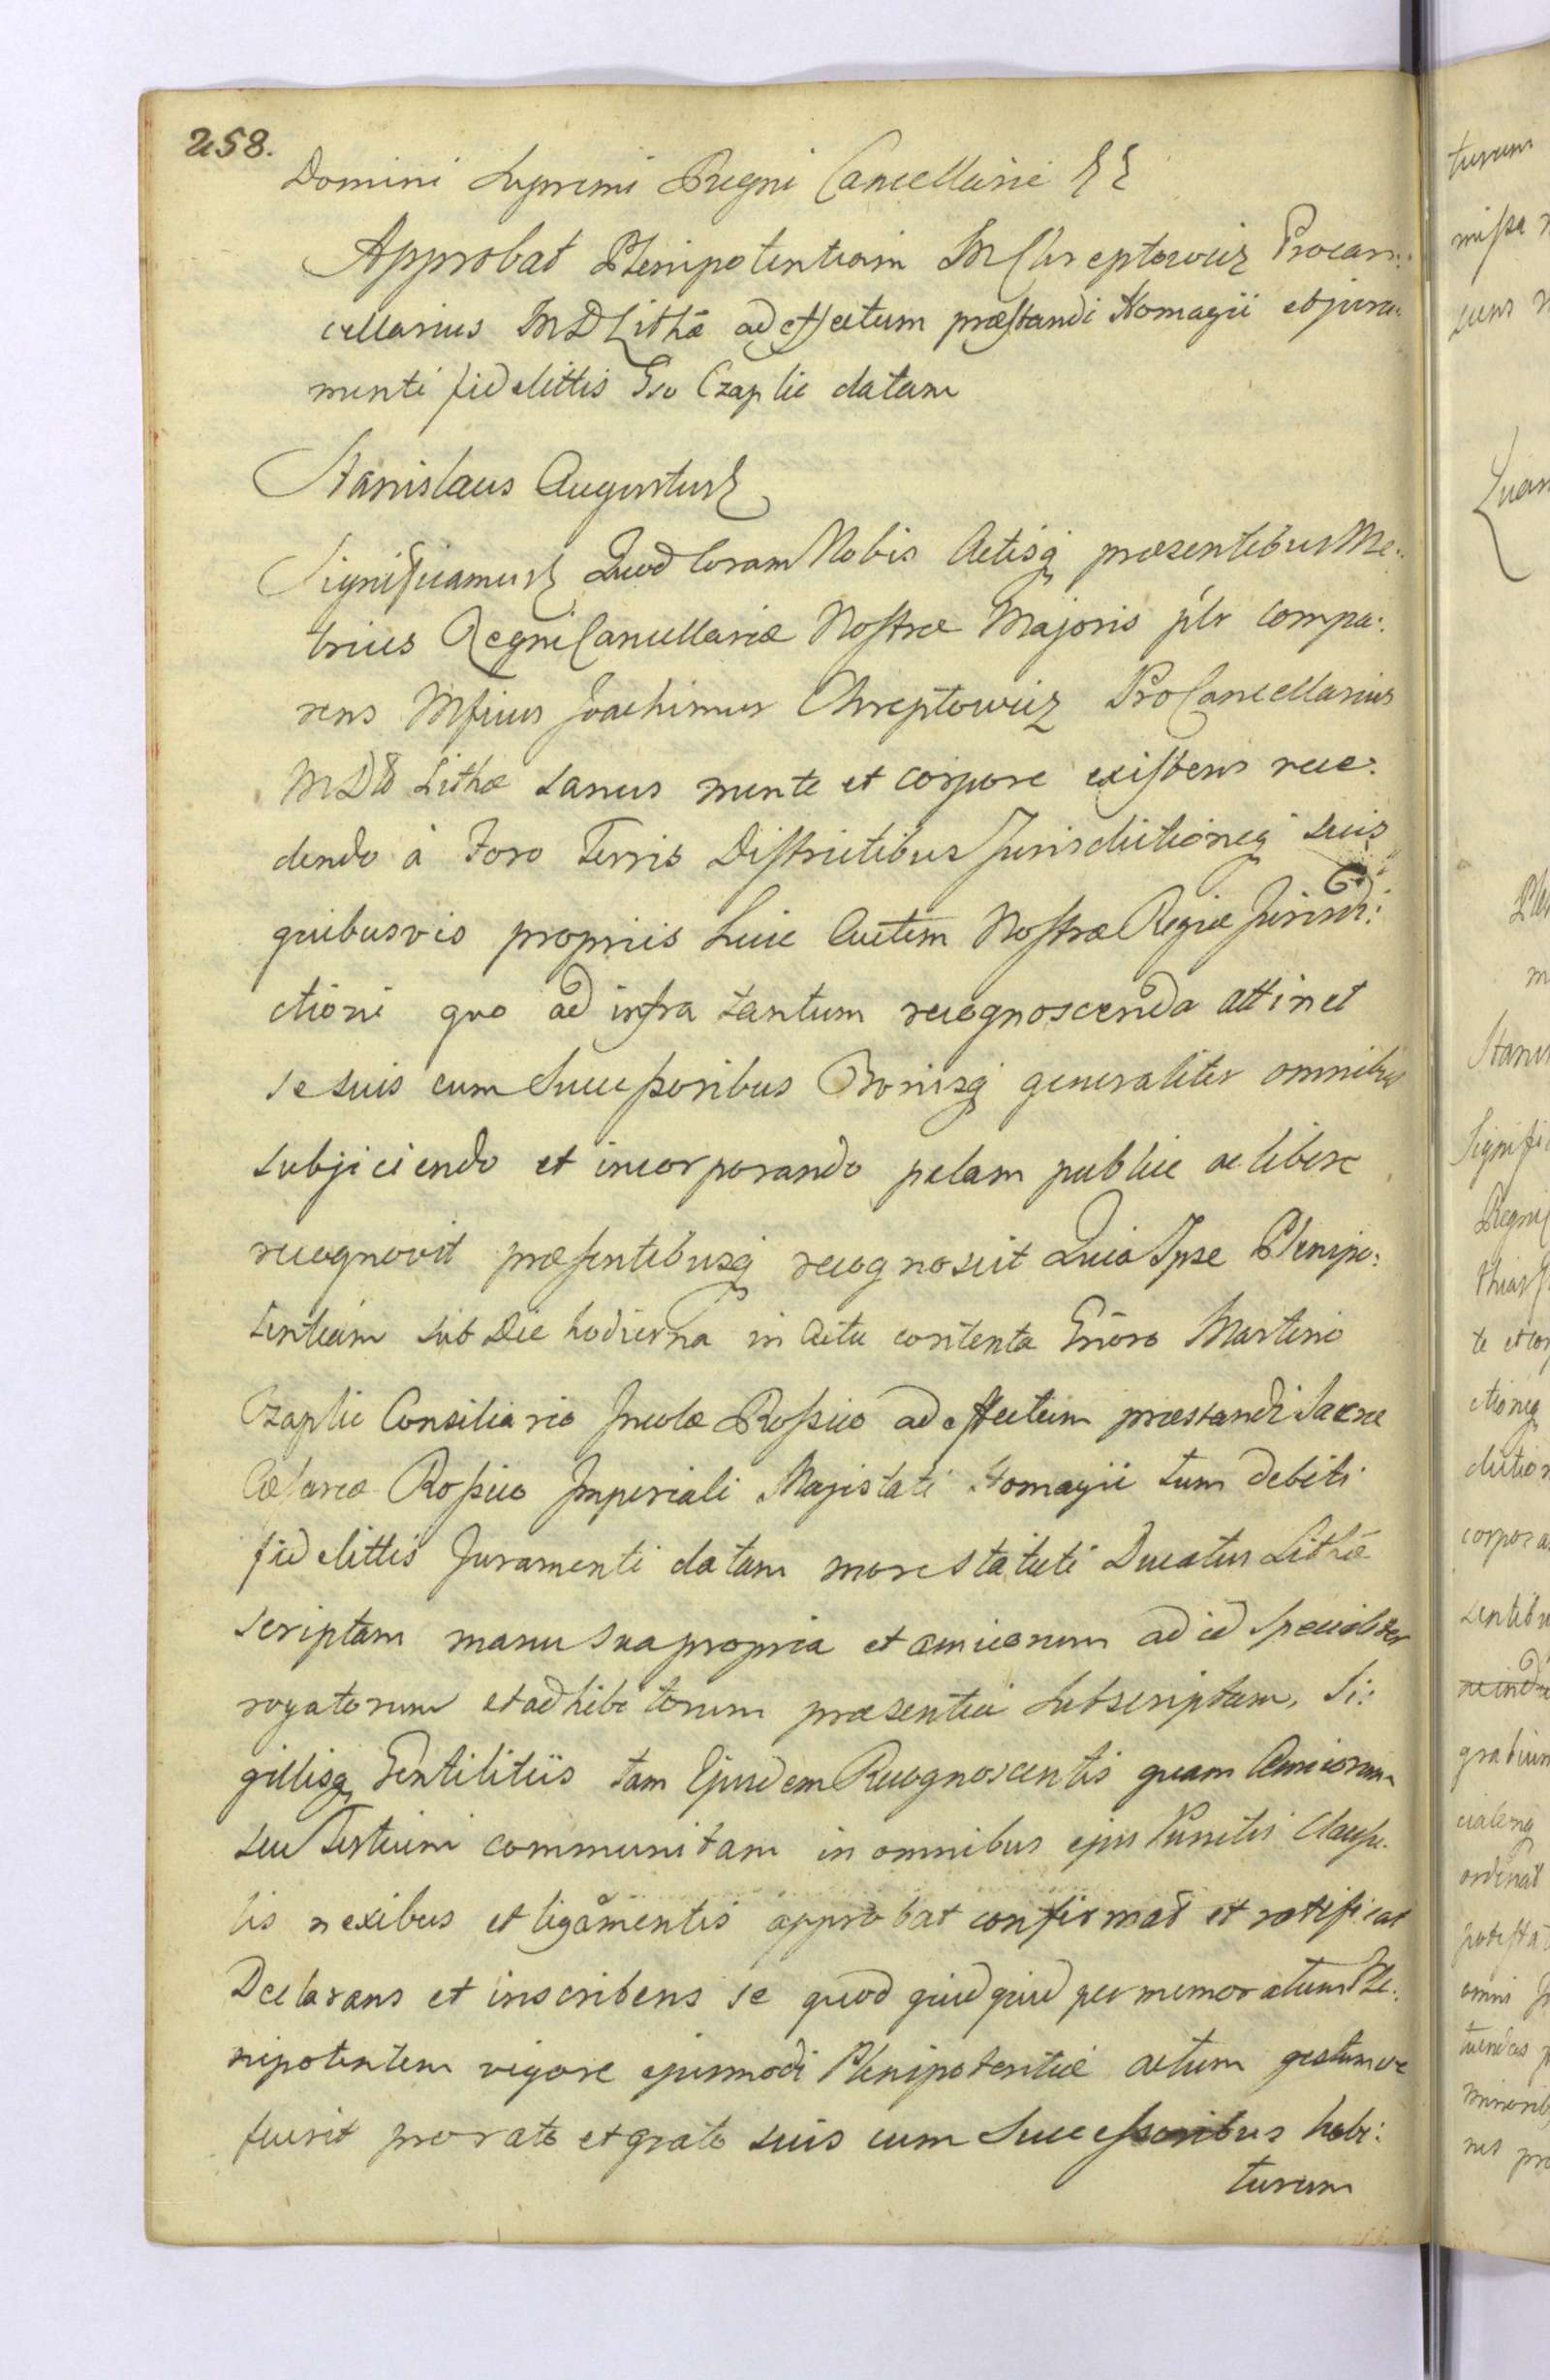 258.
Domini Supremi Regni Cancellarii
Approbat Plenipotentiam M Chreptowicz Procan:
cellarius M D Lithæ ad effectum præstandi Homagii et jura:
menti fidelittis Gso Czaplic datam
Stanislaus Augustus
Significamus Quod Coram Nobis Actisq præsentibus Me:
trices Regni Cancellariæ Nostræ Majoris plr compa:
rens Mficus Joachimus Chreptowicz ProCancellarius
M D Lithæ sanus mente et corpore existens rece:
dendo à Foro Terris Districtibus Jurisdictioneq suis
quibusvis propriis huic autem Nostræ Regiæ Jurisdi:
ctioni quo ad infra tantum recognoscenda attinet
se suis cum Successoribus Bonisq generaliter omnibus
subjiciendo et incorporando palam publice ac libere
recognovit præsentibusq recognoscit Quia Ipse Plenipo:
tentiam sub Die hodierna in Actu contenta Gnoso Martino
Czaplic Consiliario Incolæ Rossico ad effectum præstandi Sacræ
Cæsareæ Rossico Imperiali Majistati Homagii tum debiti
fidelittis Juramenti datam more statuti Ducatus Lithæ
scriptam manu sua propria et amicorum ad id specialiter
rogatorum et adhibitorum præsentia subscriptam, Si:
gillisq Gentilitiis tam Ejusdem Recognoscentis quam Amicorum
seu Testium communitam in omnibus ejus Punctis Clausu:
lis nexibus et ligamentis approbat confirmat et ratificat
Declarans et inscribens se quod quidquid per memoratum Ple:
nipotentem vigore ejusmodi Plenipotentiæ actum gestumve
fuerit pro rato et grato suis cum Successoribus habi:
turum